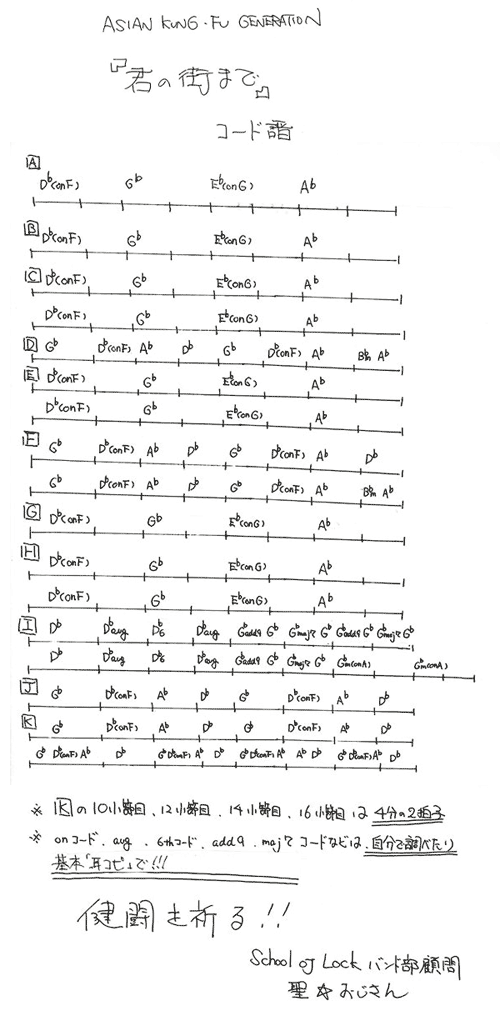 ASIAN KUNG-FU GENERATION
『君の街まで』
コード譜
A
D♭(onF) G♭ E♭(onG) A♭
B D♭(onF) G♭ E♭(onG) A♭
C D♭(onF) G♭ E♭(onG) A♭
D♭(onF) G♭ E♭(onG) A♭
D G♭ D♭(onF) A♭ D♭ G♭ D♭(onF) A♭ B♭m A♭
E D♭(onF) G♭ E♭(onG) A♭
D♭(onF) G♭ E♭(onG) A♭
F G♭ D♭(onF) A♭ D♭ G♭ D♭(onF) A♭ D♭
G♭ D♭(onF) A♭ D♭ G♭ D♭(onF) A♭ B♭m A♭
G D♭(onF) G♭ E♭(onG) A♭
H D♭(onF) G♭ E♭(onG) A♭
D♭(onF) G♭ E♭(onG) A♭
I D♭ D♭aug D♭6 D♭aug G♭add9 G♭ G♭maj7 G♭ G♭add9 G♭ G♭maj7 G♭
D♭ D♭aug D♭6 D♭aug G♭add9 G♭ G♭maj7 G♭ G♭m(onA) G♭m(onA)
J G♭ D♭(onF) A♭ D♭ G♭ D♭(onF) A♭ D♭
K G♭ D♭(onF) A♭ D♭ G♭ D♭(onF) A♭ D♭
G♭ D♭(onF) A♭ D♭ G♭ D♭(onF) A♭ D♭ G♭ D♭(onF) A♭ A♭ D♭ G♭ D♭(onF) A♭ D♭
※ Kの10小節目、12小節目、14小節目、16小節目は4分の2拍子
※ onコード、aug、6thコード、add9、maj7コードなどは、自分で調べたり
基本「耳コピ」で!!!
健闘を祈る!!
School of Lock バンド部顧問
聖☆おじさん